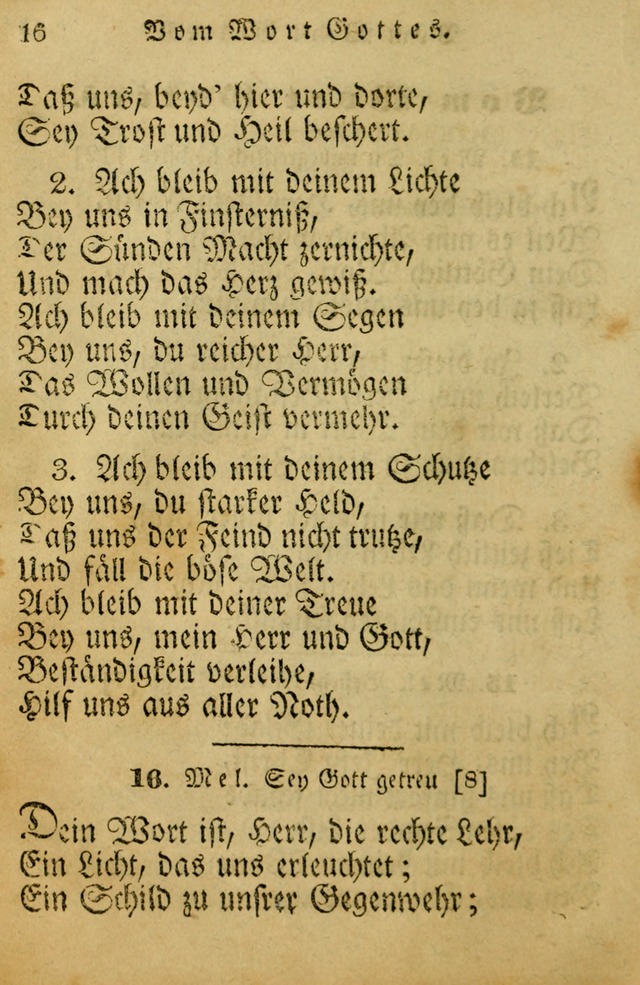 16 Vom Wort Gottes.
Daß uns, beyd' hier und dorte,
Sey Trost und Heil beschert.
2. Ach bleib mit deinem Lichte
Bey uns in Finsterniß,
Der Sünden Macht zernichte,
Und mach das Herz gewiß.
Ach bleib mit deinem Segen
Bey uns, du reicher Herr,
Das Wollen und Vermögen
Durch deinen Geist vermehr.
3. Ach bleib mit deinem Schutze
Bey uns, du starker Held,
Daß uns der Feind nicht trutze,
Und fäll die böse Welt.
Ach bleib mit deiner Treue
Bey uns, mein Herr und Gott,
Beständigkeit verleihe,
Hilf uns aus aller Noth.
16. Mel. Sey Gott getreu [8]
Dein Wort ist, Herr, die rechte Lehr,
Ein Licht, das uns erleuchtet;
Ein Schild zu unsrer Gegenwehr;